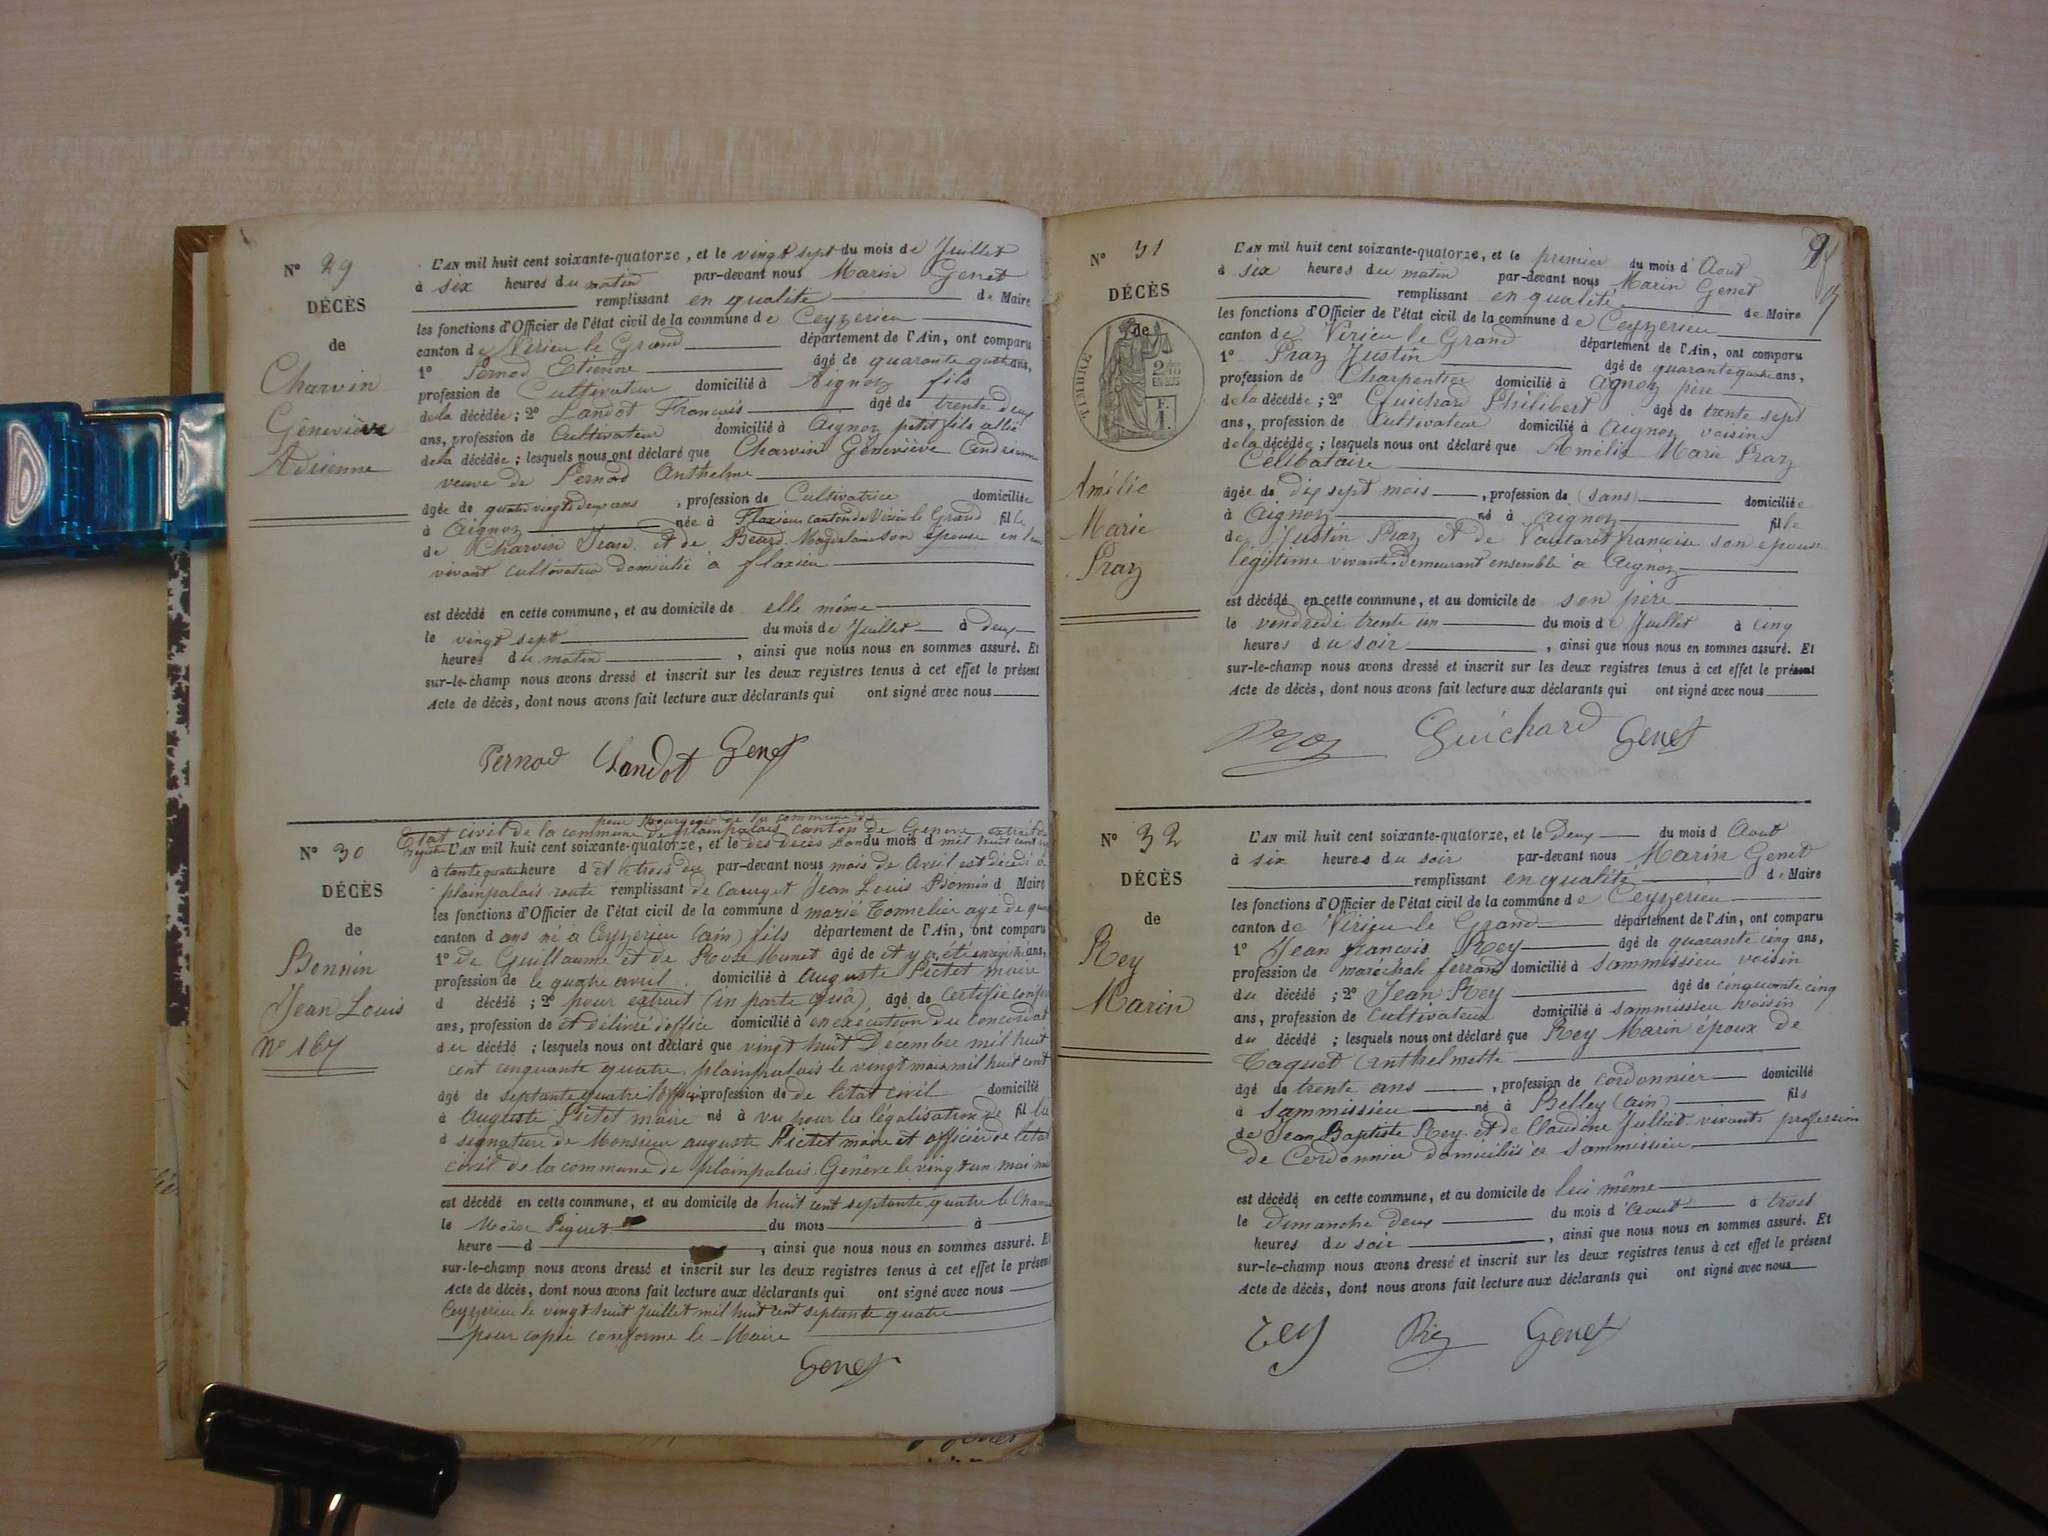 N° 29
DÉCÈS
de
Charvin
Géneviève
Adrienne
L'AN mil huit cent soixante-quatorze, et le vingt sept du mois de Juillet
à six heures du matin par-devant nous Marin Genet
remplissant en qualité de Maire
les fonctions d'Officier de l'état civil de la commune de Ceyzerieu
canton de Virieu le Grand département de l'Ain, ont comparu
1° Pernod Etienne âgé de quarante quatre ans,
profession de Cultivateur domicilié à Aignoz fils
de la décédée; 2° Landot Francois âgé de trente deux
ans, profession de Cultivateur domicilié à Aignoz petit fils allié
de la décédée; lesquels nous ont déclaré que Charvin Géneviève Andrienne
veuve de Pernod Anthelme
âgée de quatre vingts deux ans, profession de Cultivatrice domiciliée
à Aignoz née à Flaxieu canton de Virieu le Grand fille
de Charvin Jean et de Beard Magdelaine son épouse en leur
vivant cultivateur domicilié à flaxieu
est décédé en cette commune, et au domicile de elle même
le vingt sept du mois de Juillet à deux
heures du matin, ainsi que nous nous en sommes assuré. Et
sur-le-champ nous avons dressé et inscrit sur les deux registres tenus à cet effet le présent
Acte de décès, dont nous avons fait lecture aux déclarants qui ont signé avec nous
Pernod Landot Genet
N° 30
DÉCÈS
de
Bonnin
Jean Louis
N° 167
pour Bourgeois de la commune de
Etat civil de la commune de plainpalais canton de Geneve extrait du
registre L'AN mil huit cent soixante-quatorze, et le des décès du mois d mil huit cent
à heure d et le trois du par-devant nous mois de Avril est décédé à
plainpalais route remplissant de Carouget Jean Louis d Maire
les fonctions d'Officier de l'état civil de la commune d marié Tonnelier agé de
canton d ans né à Ceyzerieu (ain) fils département de l'Ain, ont comparu
1° de Guillaume et de Rose Munet âgé de et y a été enregistré ans,
profession de le quatre avril domicilié à Auguste Pictet maire
d décédé; 2° pour extrait (in parte quâ) âgé de Certifié conforme
ans, profession de et délivré d'office domicilié à en exécution du Concordat
du décédé; lesquels nous ont déclaré que vingt huit Décembre mil huit
cent cinquante quatre plainpalais le vingt mai mil huit cent
âgé de septante quatre l'officier profession de de l'état civil domicilié
à Auguste Pictet maire né à vu pour la légalisation de fil la
d signature de Monsieur auguste Pictet maire et officier de l'état
civil de la commune de plainpalais. Genève le vingt un mai mil
est décédé en cette commune, et au domicile de huit cent septante quatre le
le Moïse Piguet du mois à
heure d, ainsi que nous nous en sommes assuré. Et
sur-le-champ nous avons dressé et inscrit sur les deux registres tenus à cet effet le présent
Acte de décès, dont nous avons fait lecture aux déclarants qui ont signé avec nous
Ceyzerieu le vingt huit Juillet mil huit cent septante quatre
pour copie conforme le Maire
Genet
N° 31
DÉCÈS
de
TIMBRE
F.
1.
Amélie
Marie
Praz
L'AN mil huit cent soixante-quatorze, et le premier du mois d'Aout
à six heures du matin par-devant nous Marin Genet
remplissant en qualité de Maire
les fonctions d'Officier de l'état civil de la commune de Ceyzerieu
canton de Virieu le Grand département de l'Ain, ont comparu
1° Praz Justin âgé de quarante quatre ans,
profession de Charpentier domicilié à Aignoz père
de la décédée; 2° Guichard Philibert âgé de trente sept
ans, profession de Cultivateur domicilié à Aignoz voisin
de la décédée; lesquels nous ont déclaré que Amélie Marie Praz
Célibataire
âgée de dix sept mois, profession de (sans) domiciliée
à Aignoz né à Aignoz fille
de Justin Praz et de Vautaret françoise son épouse
légitime vivants demeurant ensemble à Aignoz
est décédé en cette commune, et au domicile de son père
le vendredi trente un du mois de Juillet à cinq
heures du soir, ainsi que nous nous en sommes assuré. Et
sur-le-champ nous avons dressé et inscrit sur les deux registres tenus à cet effet le présent
Acte de décès, dont nous avons fait lecture aux déclarants qui ont signé avec nous
Praz Guichard Genet
N° 32
DÉCÈS
de
Rey
Marin
L'AN mil huit cent soixante-quatorze, et le Deux du mois d Aout
à six heures du soir par-devant nous Marin Genet
remplissant en qualité de Maire
les fonctions d'Officier de l'état civil de la commune de Ceyzerieu
canton de Virieu le Grand département de l'Ain, ont comparu
1° Jean francois Rey âgé de quarante cinq ans,
profession de maréchal ferrand domicilié à Sammissieu voisin
du décédé; 2° Jean Rey âgé de cinquante cinq
ans, profession de Cultivateur domicilié à Sammissieu voisin
du décédé; lesquels nous ont déclaré que Rey Marin époux de
Caquet Anthelmette
âgé de trente ans, profession de cordonnier domicilié
à Sammissieu né à Belley (ain) fils
de Jean Baptiste Rey et de Claudine Julliet vivants profession
de Cordonnier domiciliés à Sammissieu
est décédé en cette commune, et au domicile de lui même
le dimanche deux du mois d'Aout à trois
heures du soir, ainsi que nous nous en sommes assuré. Et
sur-le-champ nous avons dressé et inscrit sur les deux registres tenus à cet effet le présent
Acte de décès, dont nous avons fait lecture aux déclarants qui ont signé avec nous
rey Genet